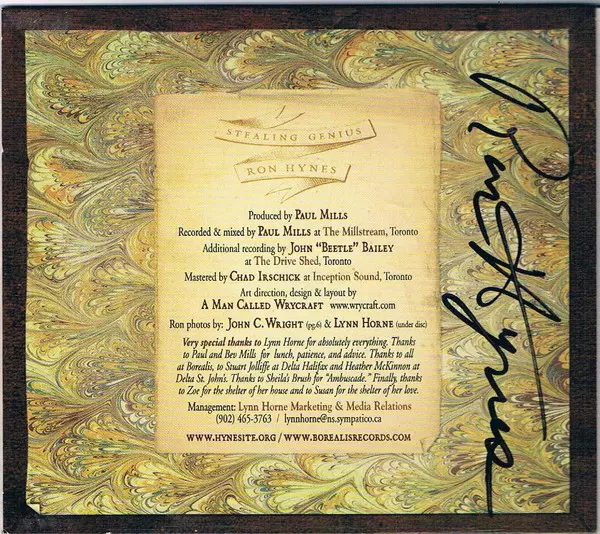 STEALING GENIUS
RON HYNES
Produced by PAUL MILLS
Recorded & mixed by PAUL MILLS at The Millstream, Toronto
Additional recording by JOHN "BEETLE" BAILEY
at The Drive Shed, Toronto
Mastered by CHAD IRSCHICK at Inception Sound, Toronto
Art direction, design & layout by
A MAN CALLED WRYCRAFT www.wrycraft.com
Ron photos by: JOHN C. WRIGHT (pg.6) & LYNN HORNE (under disc)
Very special thanks to Lynn Horne for absolutely everything. Thanks
to Paul and Bev Mills for lunch, patience, and advice. Thanks to all
at Borealis, to Stuart Jolliffe at Delta Halifax and Heather McKinnon at
Delta St. John's. Thanks to Sheila's Brush for "Ambuscade." Finally, thanks
to Zoe for the shelter of her house and to Susan for the shelter of her love.
Management: Lynn Horne Marketing & Media Relations
(902) 465-3763 / lynnhorne@ns.sympatico.ca
WWW.HYNESITE.ORG / WWW.BOREALISRECORDS.COM
Ron Hynes